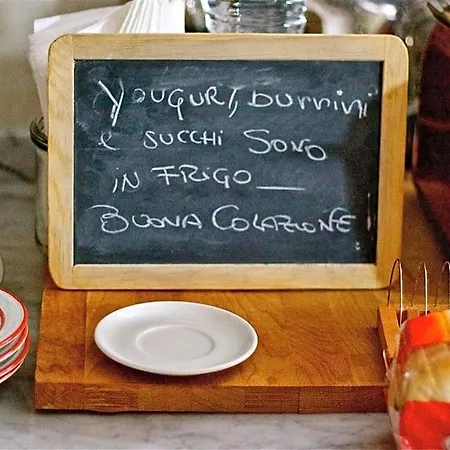 Yougurt, burrini
e succhi sono
in frigo
Buona Colazione!